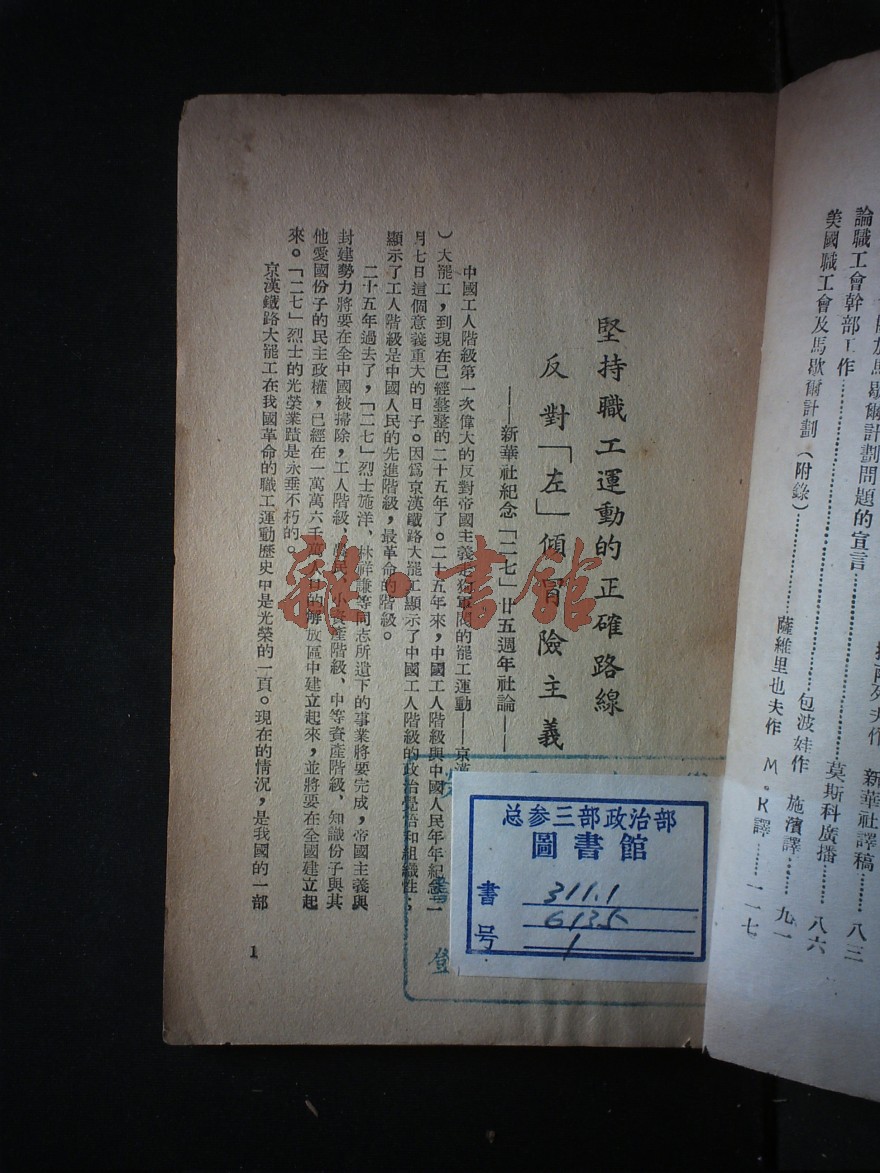 論職工會幹部工作……莫斯科廣播……八六
包波娃作 施濱譯……九一
美國職工會及馬歇爾計劃(附錄)……薩維里也夫作 M.K譯……一一七
馬歇爾計劃問題的宣言
新華社譯稿……八三
堅持職工運動的正確路線
反對「左」傾冒險主義
——新華社紀念「二七」廿五週年社論——
中國工人階級第一次偉大的反對帝國主義走狗軍閥的罷工運動——京漢
)大罷工,到現在已經整整的二十五年了。二十五年來,中國工人階級與中國人民年年紀念二
月七日這個意義重大的日子。因爲京漢鐵路大罷工顯示了中國工人階級的政治覺悟和組織性;
顯示了工人階級是中國人民的先進階級,最革命的階級。
二十五年過去了,「二七」烈士施洋、林祥謙等同志所遺下的事業將要完成,帝國主義與
封建勢力將要在全中國被掃除,工人階級、農民、小資產階級、中等資產階級、知識份子與其
他愛國份子的民主政權,已經在一萬萬六千萬人口的解放區中建立起來,並將要在全國建立起
來。「二七」烈士的光榮業蹟是永垂不朽的。
京漢鐵路大罷工在我國革命的職工運動歷史中是光榮的一頁。現在的情況,是我國的一部
1
总参三部政治部
圖書館
書 311.1
6135
号 1
登
雜·書館